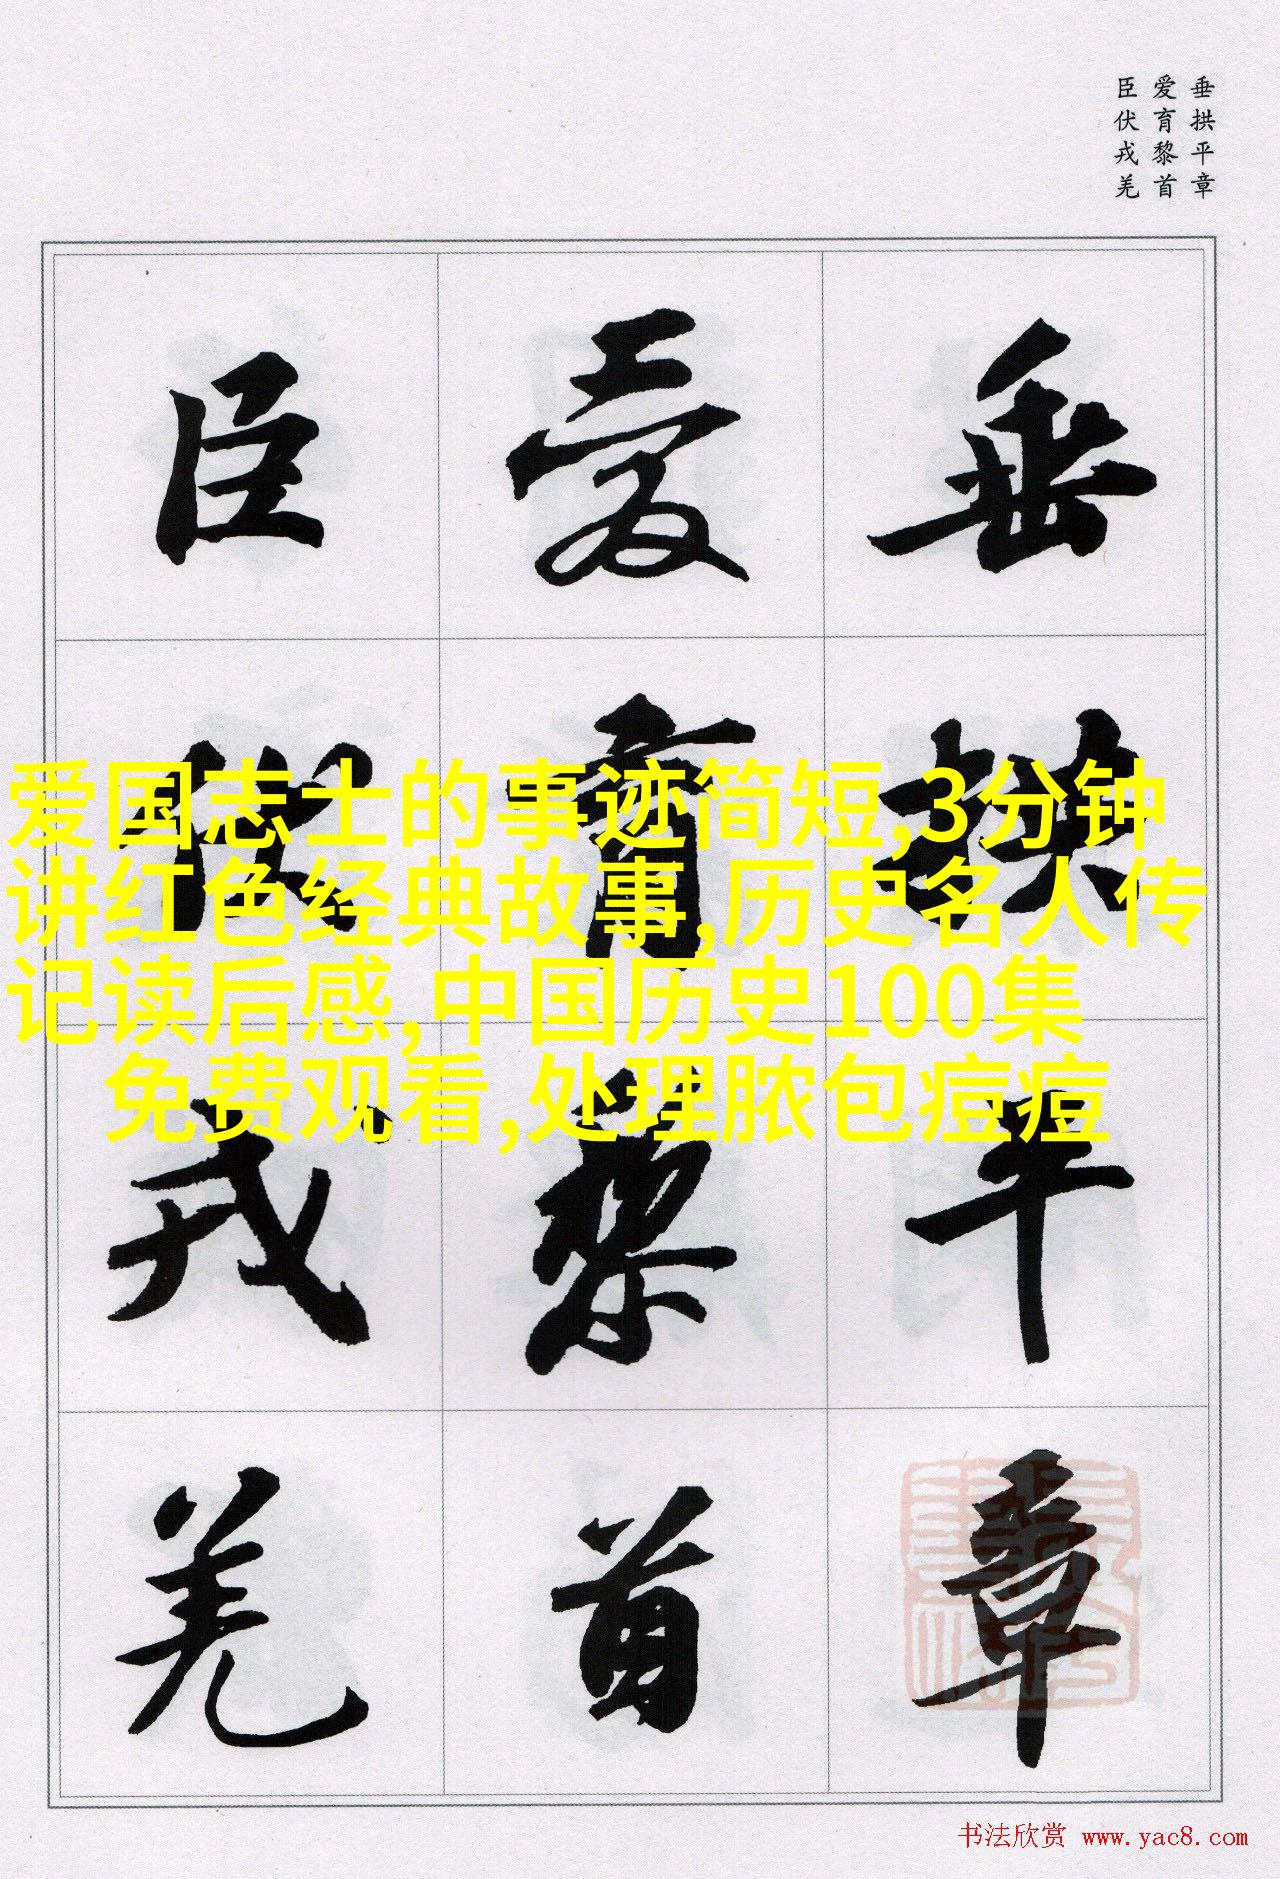 垂拱平章
爱育黎首
臣伏戎羌
垂拱平章
爱育黎首
臣伏戎羌
爱国志士的事迹简短,3分钟
讲红色经典故事,历史名人传
记读后感,中国历史100集
免费观看,处理脓包痘痘
书法欣赏 www.yac8.com